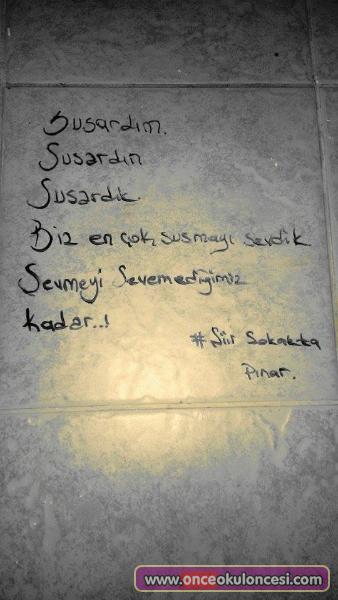 Susardım.
Susardın
Susardık.
Biz en çok, susmayı sevdik
Sevmeyi Sevemediğimiz
kadar..!
# Şiir Sokakta
Pınar.
www.onceokuloncesi.com